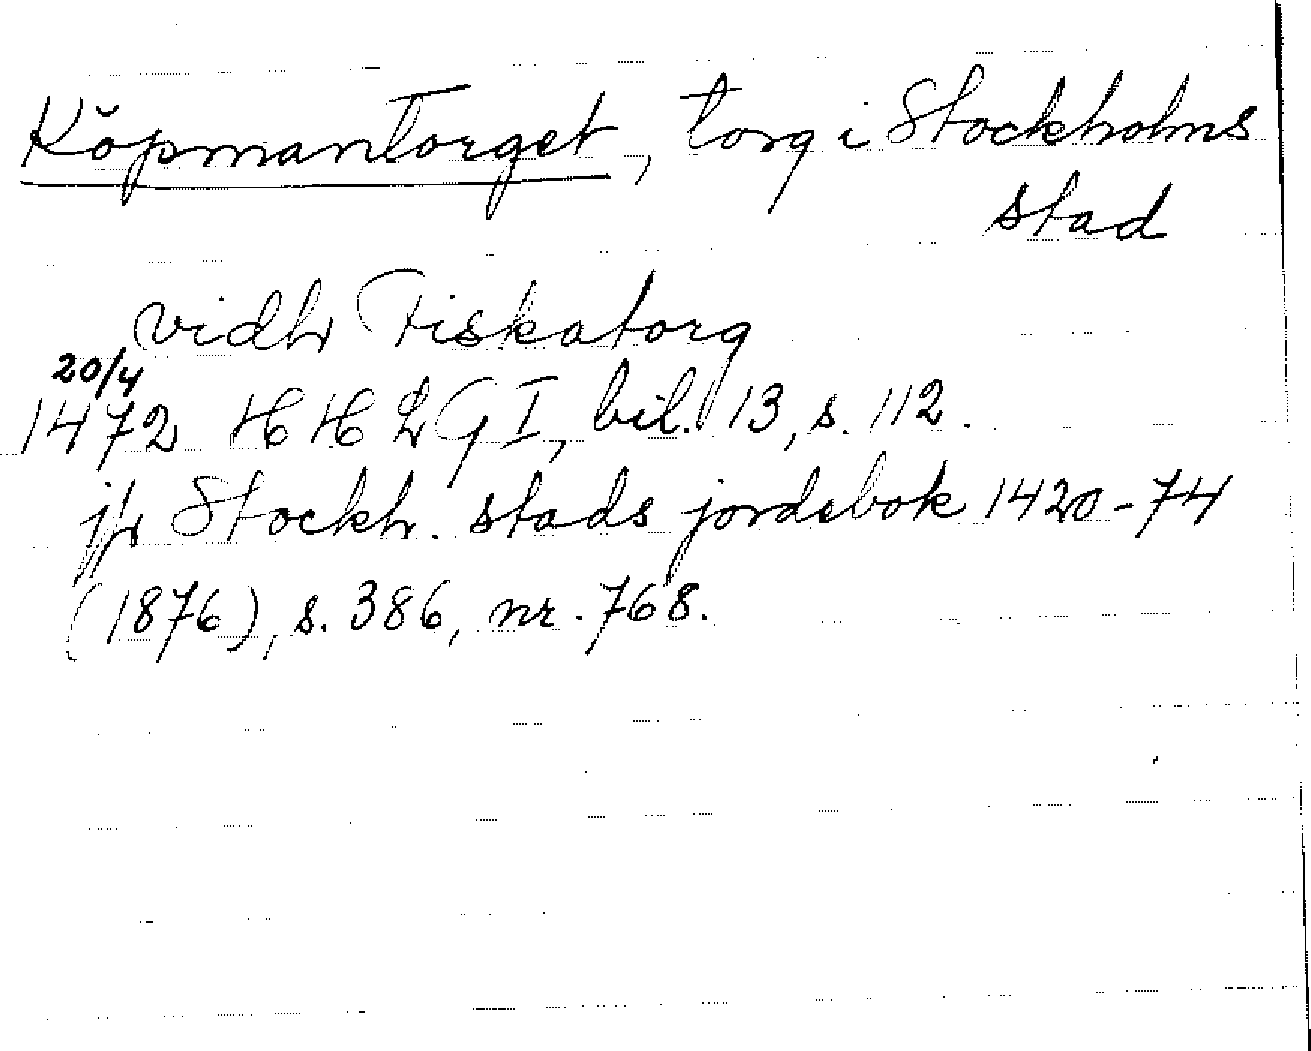 Köpmantorget, torg i Stockholms
stad
vidh Fiskatorg
20/4
1472 HHLG I, bil. 13, s. 112.
jfr Stockh. stads jordebok 1420-74
(1876), s. 386, nr. 768.